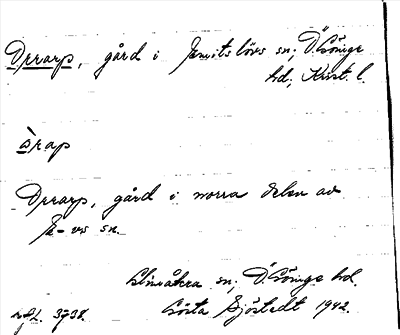 Drrarp, gård i Emitslövs sn; Ö. Göinge
hd; Krist. l.
àrap
Drrarp, gård i norra delen av
E-vs sn.
Glimåkra sn; Ö. Göinge hd.
Gösta Sjöstedt 1942.
3738.